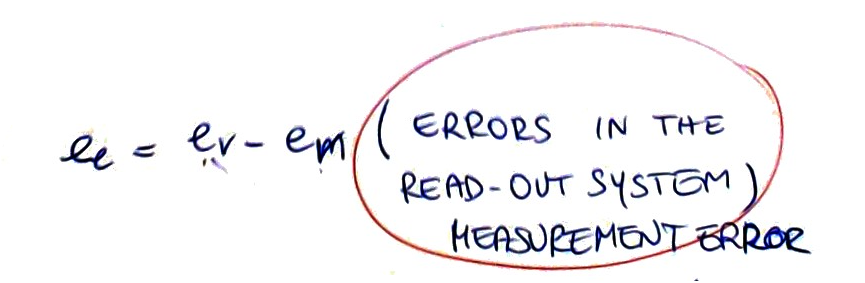 ee = er - em ( ERRORS IN THE
READ-OUT SYSTEM )
MEASUREMENT ERROR